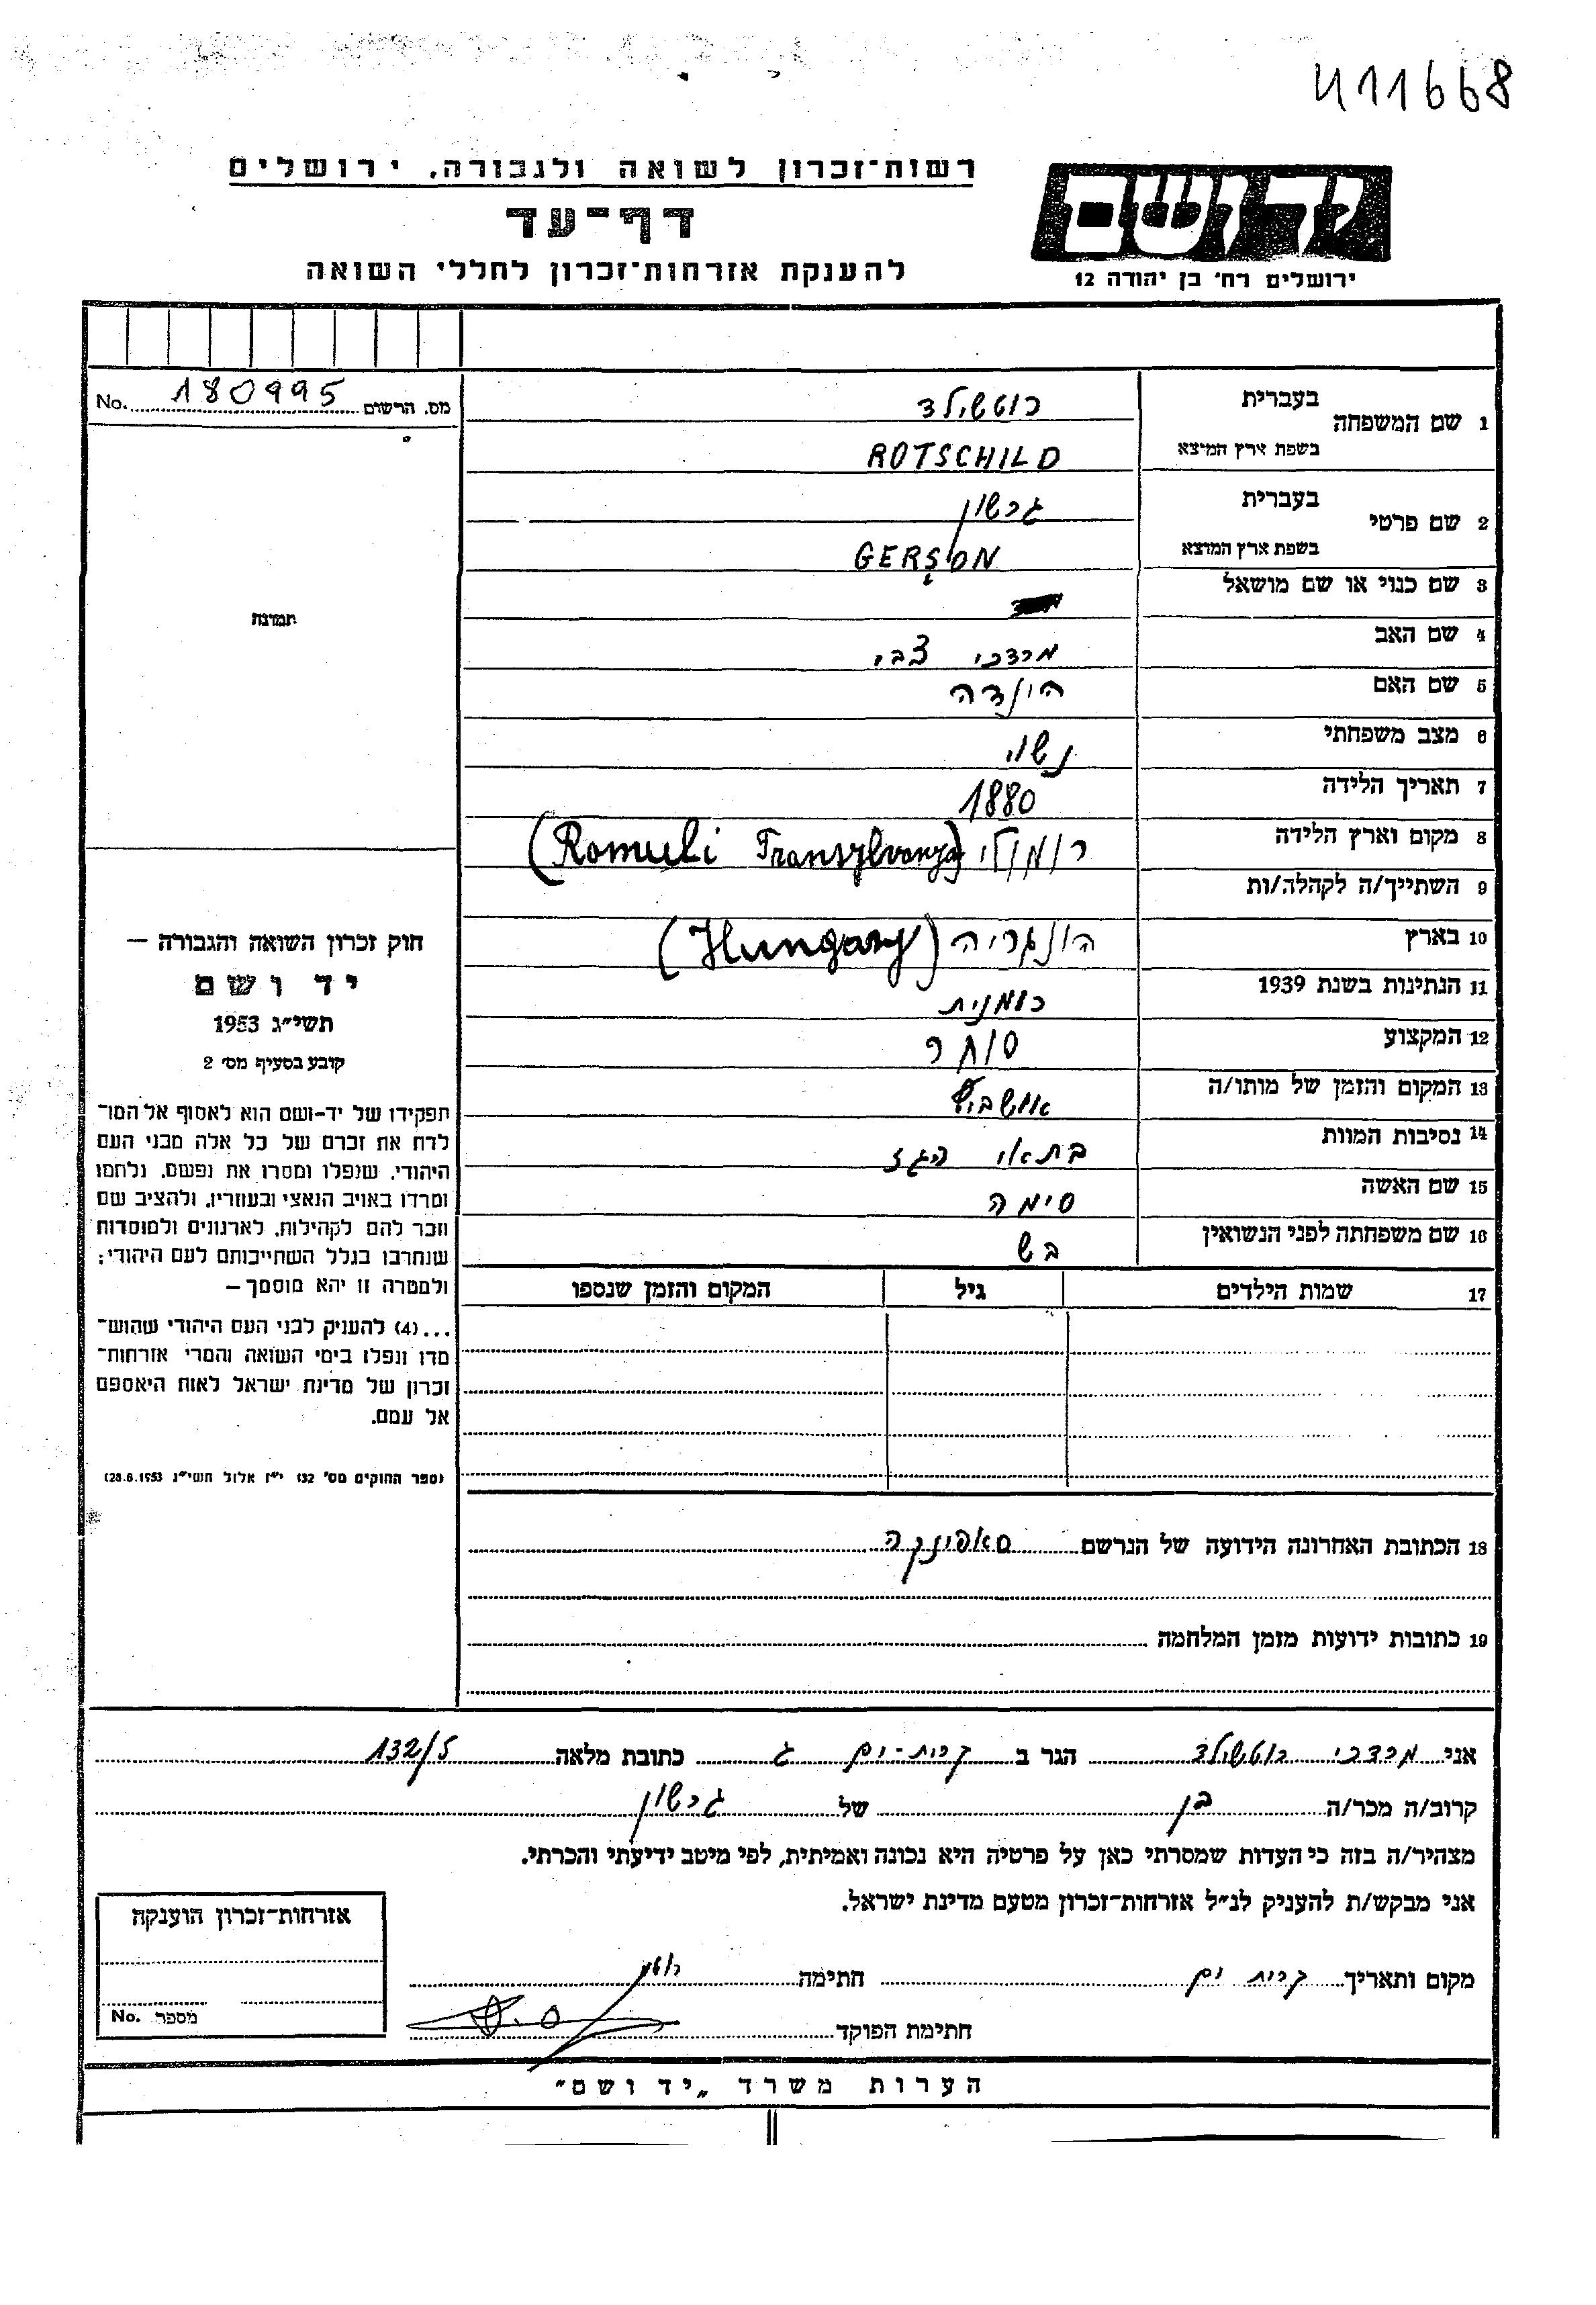 411668
רשות־זכרון לשואה ולגבורה, ירושלים
יד ושם
דף־עד
להענקת אזרחות־זכרון לחללי השואה
ירושלים רח׳ בן יהודה 12
מס. הרשום 180995 No.
1 שם המשפחה בעברית רוטשילד
בשפת ארץ המוצא ROTSCHILD
2 שם פרטי בעברית גרשון
בשפת ארץ המוצא GERȘON
3 שם כנוי או שם מושאל
4 שם האב מרדכי צבי
5 שם האם הינדה
6 מצב משפחתי נשוי
7 תאריך הלידה 1880
8 מקום וארץ הלידה רומולי (Romuli Transylvanya)
9 השתייך/ה לקהלה/ות
10 בארץ הונגריה (Hungary)
11 הנתינות בשנת 1939 רומנית
12 המקצוע סוחר
13 המקום והזמן של מותו/ה אושביץ
14 נסיבות המוות בתאי הגז
15 שם האשה סימה
16 שם משפחתה לפני הנשואין בש
17 שמות הילדים גיל המקום והזמן שנספו
תמונה
חוק זכרון השואה והגבורה —
יד ושם
תשי״ג 1953
קובע בסעיף מס׳ 2
תפקידו של יד-ושם הוא לאסוף אל המו־
לדת את זכרם של כל אלה מבני העם
היהודי, שנפלו ומסרו את נפשם, נלחמו
ומרדו באויב הנאצי ובעוזריו, ולהציב שם
וזכר להם לקהילות, לארגונים ולמוסדות
שנחרבו בגלל השתייכותם לעם היהודי;
ולמטרה זו יהא מוסמך —
...(4) להעניק לבני העם היהודי שהוש־
מדו ונפלו בימי השואה והמרי אזרחות־
זכרון של מדינת ישראל לאות היאספם
אל עמם.
(ספר החוקים מס׳ 132 י״ז אלול תשי״ג 28.8.1953)
18 הכתובת האחרונה הידועה של הנרשם סאפונקה
19 כתובות ידועות מזמן המלחמה
אני מרדכי רוטשילד הגר ב קרית-ים ג כתובת מלאה 132/5
קרוב/ה מכר/ה בן של גרשון
מצהיר/ה בזה כי העדות שמסרתי כאן על פרטיה היא נכונה ואמיתית, לפי מיטב ידיעתי והכרתי.
אני מבקש/ת להעניק לנ״ל אזרחות־זכרון מטעם מדינת ישראל.
מקום ותאריך קרית ים חתימה
חתימת הפוקד
אזרחות־זכרון הוענקה
מספר No.
הערות משרד „יד ושם״